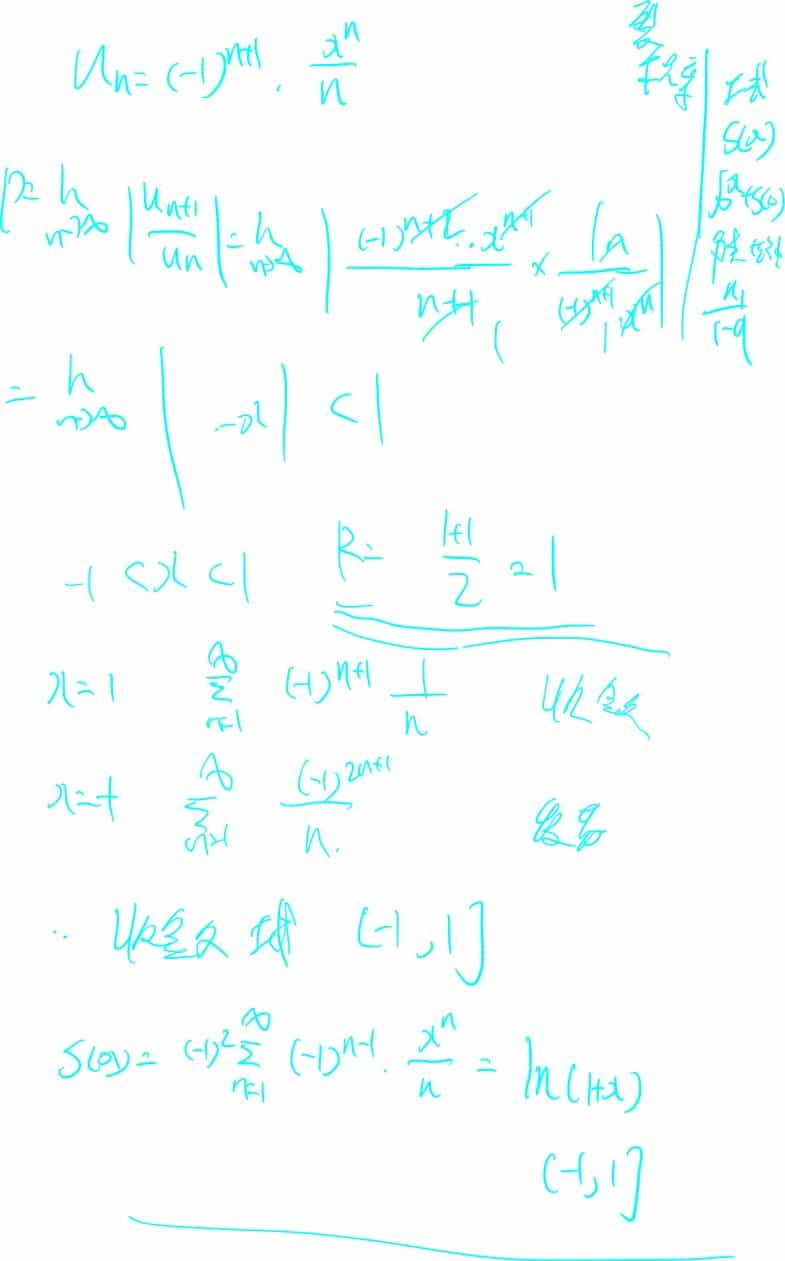 Un = (-1)^{n+1} · x^n/n
ρ = lim_{n→∞} |U_{n+1}/U_n| = lim_{n→∞} | (-1)^{n+2} · x^{n+1} / (n+1) × n / ((-1)^{n+1} · x^n) |
= lim_{n→∞} | -x | < 1
-1 < x < 1   R = (1+1)/2 = 1
x = 1   ∑_{n=1}^{∞} (-1)^{n+1} 1/n   收敛
x = -1   ∑_{n=1}^{∞} (-1)^{2n+1}/n.   发散
∴ 收敛域 (-1, 1]
S(x) = (-1)^2 ∑_{n=1}^{∞} (-1)^{n-1} · x^n/n = ln(1+x)
(-1, 1]
S(x)